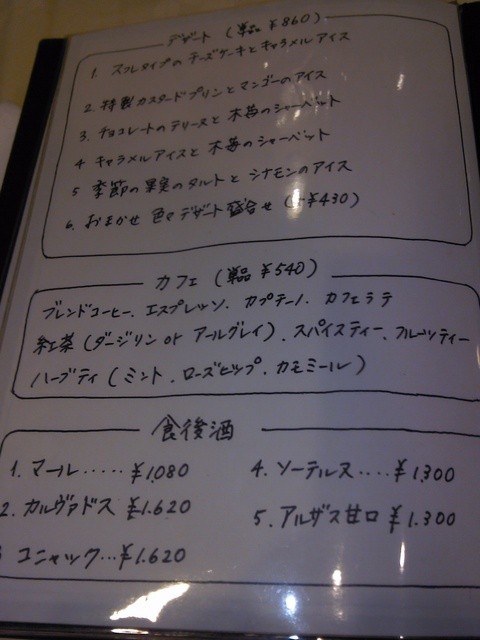 デザート (単品 ¥860)
1. スフレタイプの チーズケーキと キャラメル アイス
2. 特製 カスタードプリンと マンゴーのアイス
3. チョコレートのテリーヌと 木苺のシャーベット
4 キャラメルアイスと 木苺のシャーベット
5 季節の果実のタルトと シナモンのアイス
6. おまかせ 色々デザート盛合せ (+¥430)
カフェ (単品 ¥540)
ブレンドコーヒー、エスプレッソ、カプチーノ、カフェラテ
紅茶 (ダージリン or アールグレイ)、スパイスティー、フルーツティー
ハーブティ (ミント、ローズヒップ、カモミール)
食後酒
1. マール..... ¥1,080
4. ソーテルヌ.... ¥1,300
2. カルヴァドス ¥1,620
5. アルザス甘口 ¥1,300
コニャック...¥1,620